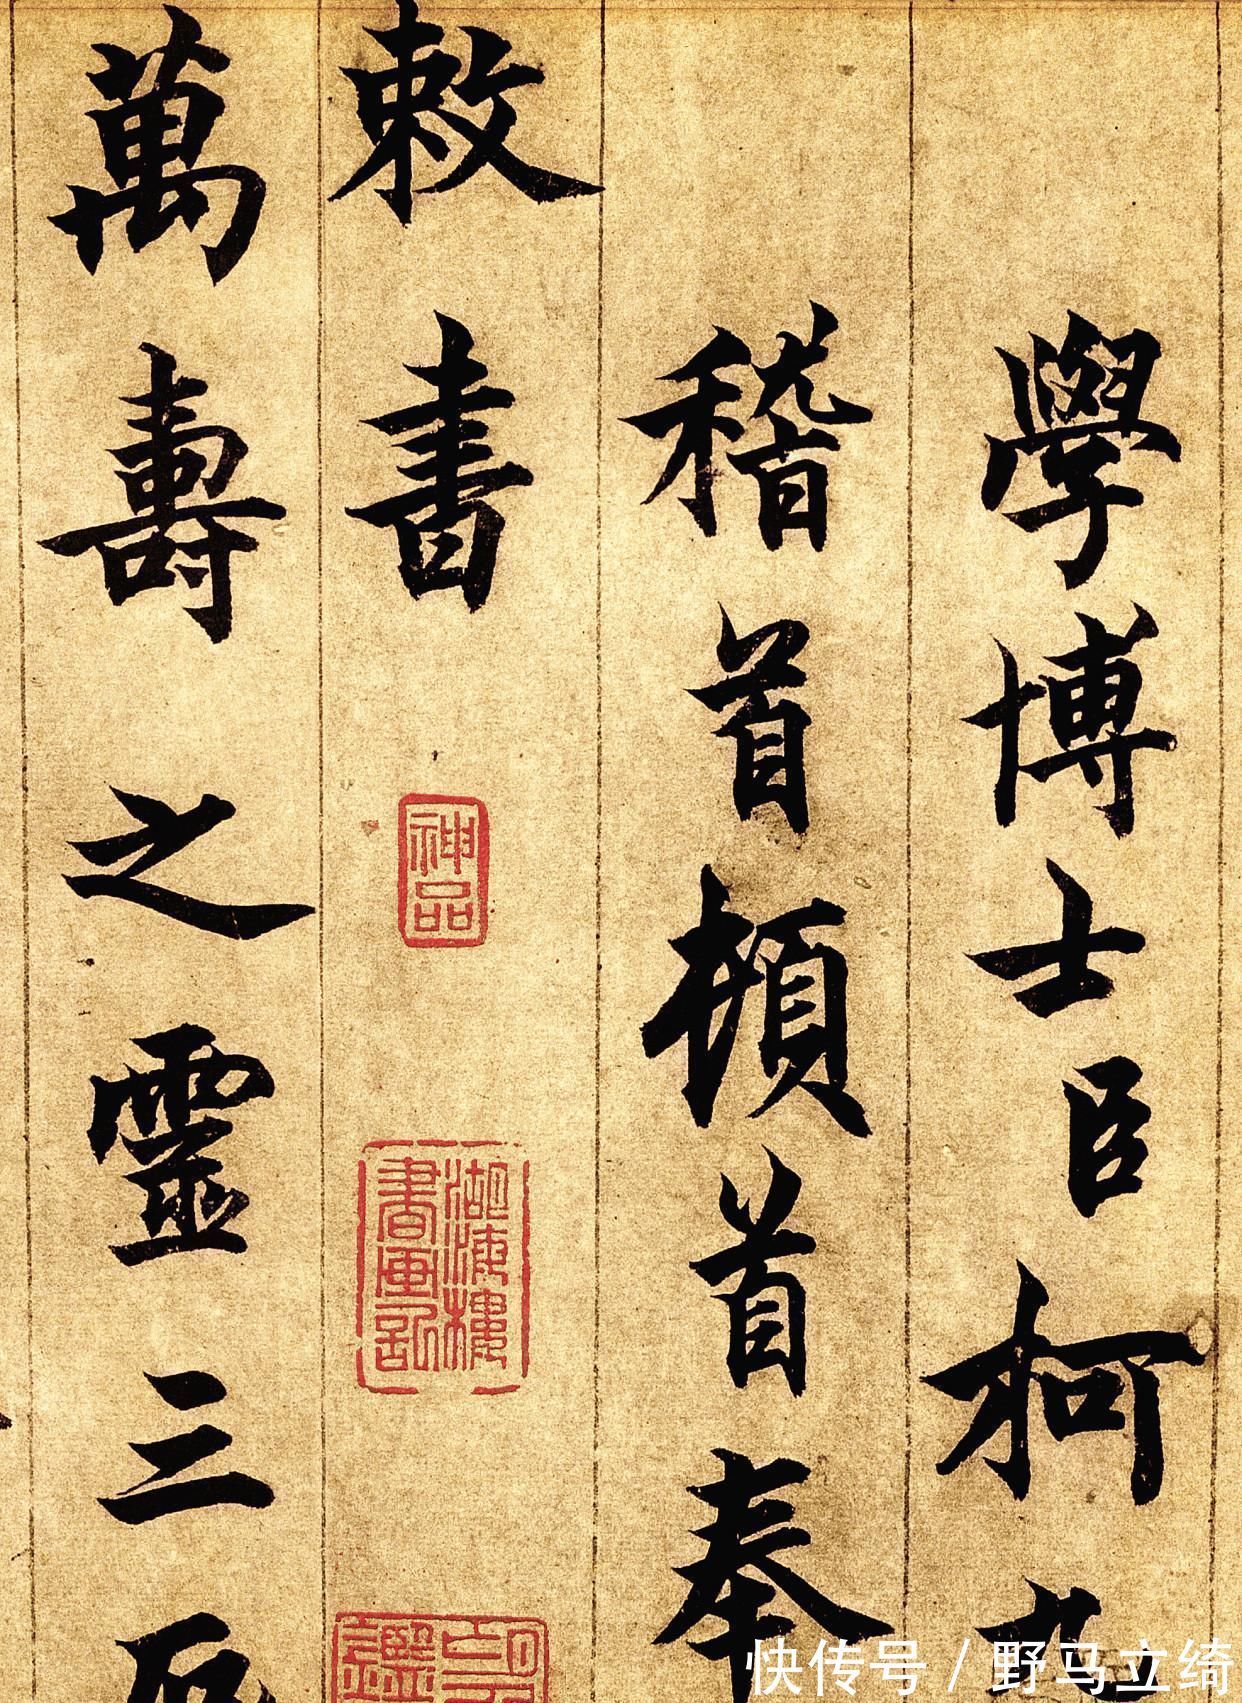 學博士臣柯九
稽首頓首奉
敕書
神品
湖海樓書画記
萬壽之靈三辰
快传号 / 野马立绮